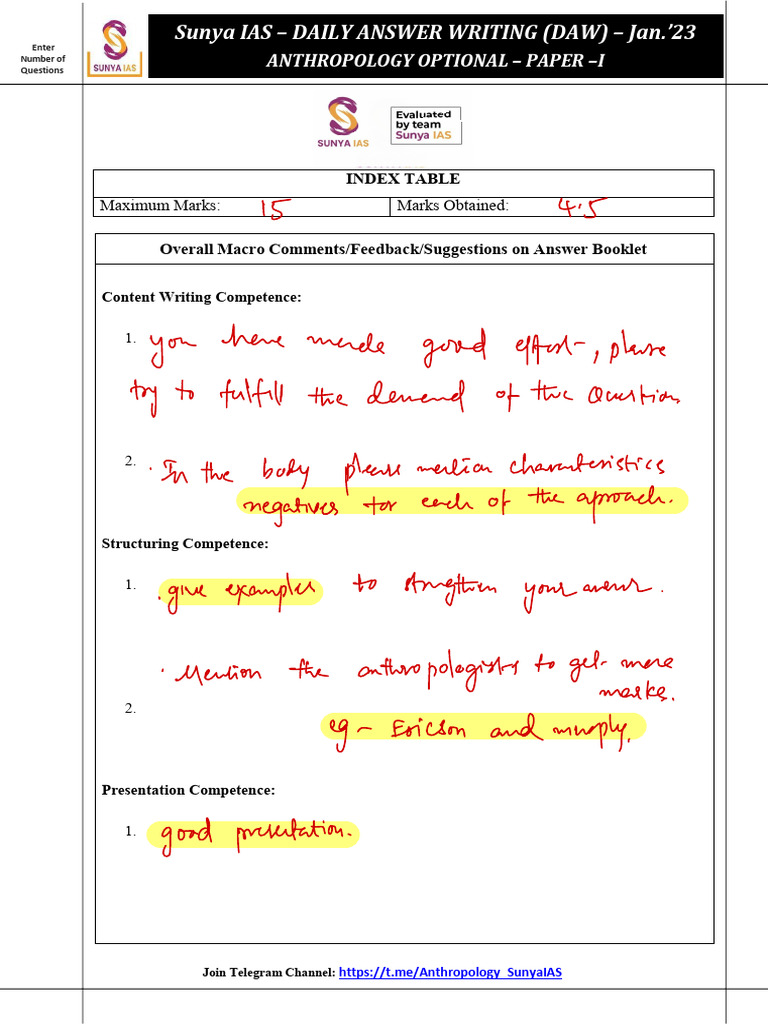 Sunya IAS – DAILY ANSWER WRITING (DAW) – Jan.'23
ANTHROPOLOGY OPTIONAL – PAPER –I
Enter
Number of
Questions
SUNYA IAS
SUNYA IAS
Evaluated
by team
Sunya IAS
INDEX TABLE
Maximum Marks: 15 Marks Obtained: 4.5
Overall Macro Comments/Feedback/Suggestions on Answer Booklet
Content Writing Competence:
1. you have made good effort, please
try to fulfill the demand of the Question.
2. In the body please mention characteristics
negatives for each of the aproach.
Structuring Competence:
1. give examples to strengthen your answer.
. Mention the anthropologists to get more
marks.
2.
eg – Ericson and murphy.
Presentation Competence:
1. good presentation.
Join Telegram Channel: https://t.me/Anthropology_SunyaIAS